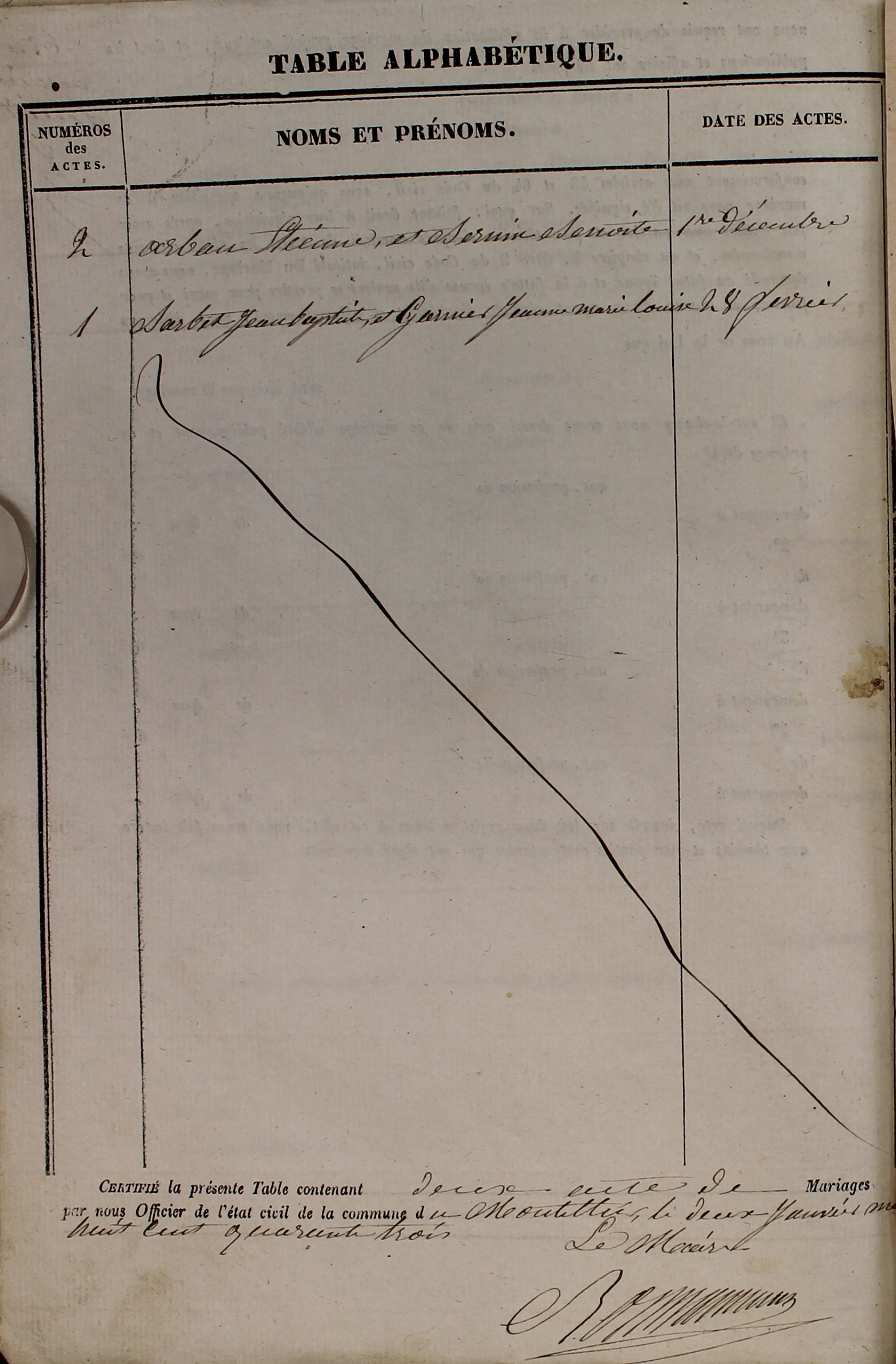 TABLE ALPHABÉTIQUE.
NUMÉROS
des
ACTES.
NOMS ET PRÉNOMS.
DATE DES ACTES.
2 arbau Étienne, et 1re décembre
1 Jean baptiste, et Garnier Jeanne marie louise 28 fevrier
CERTIFIÉ la présente Table contenant deux acte de Mariages
par nous Officier de l'état civil de la commune du le deux Janvier
huit cent quarante trois
Le Maire